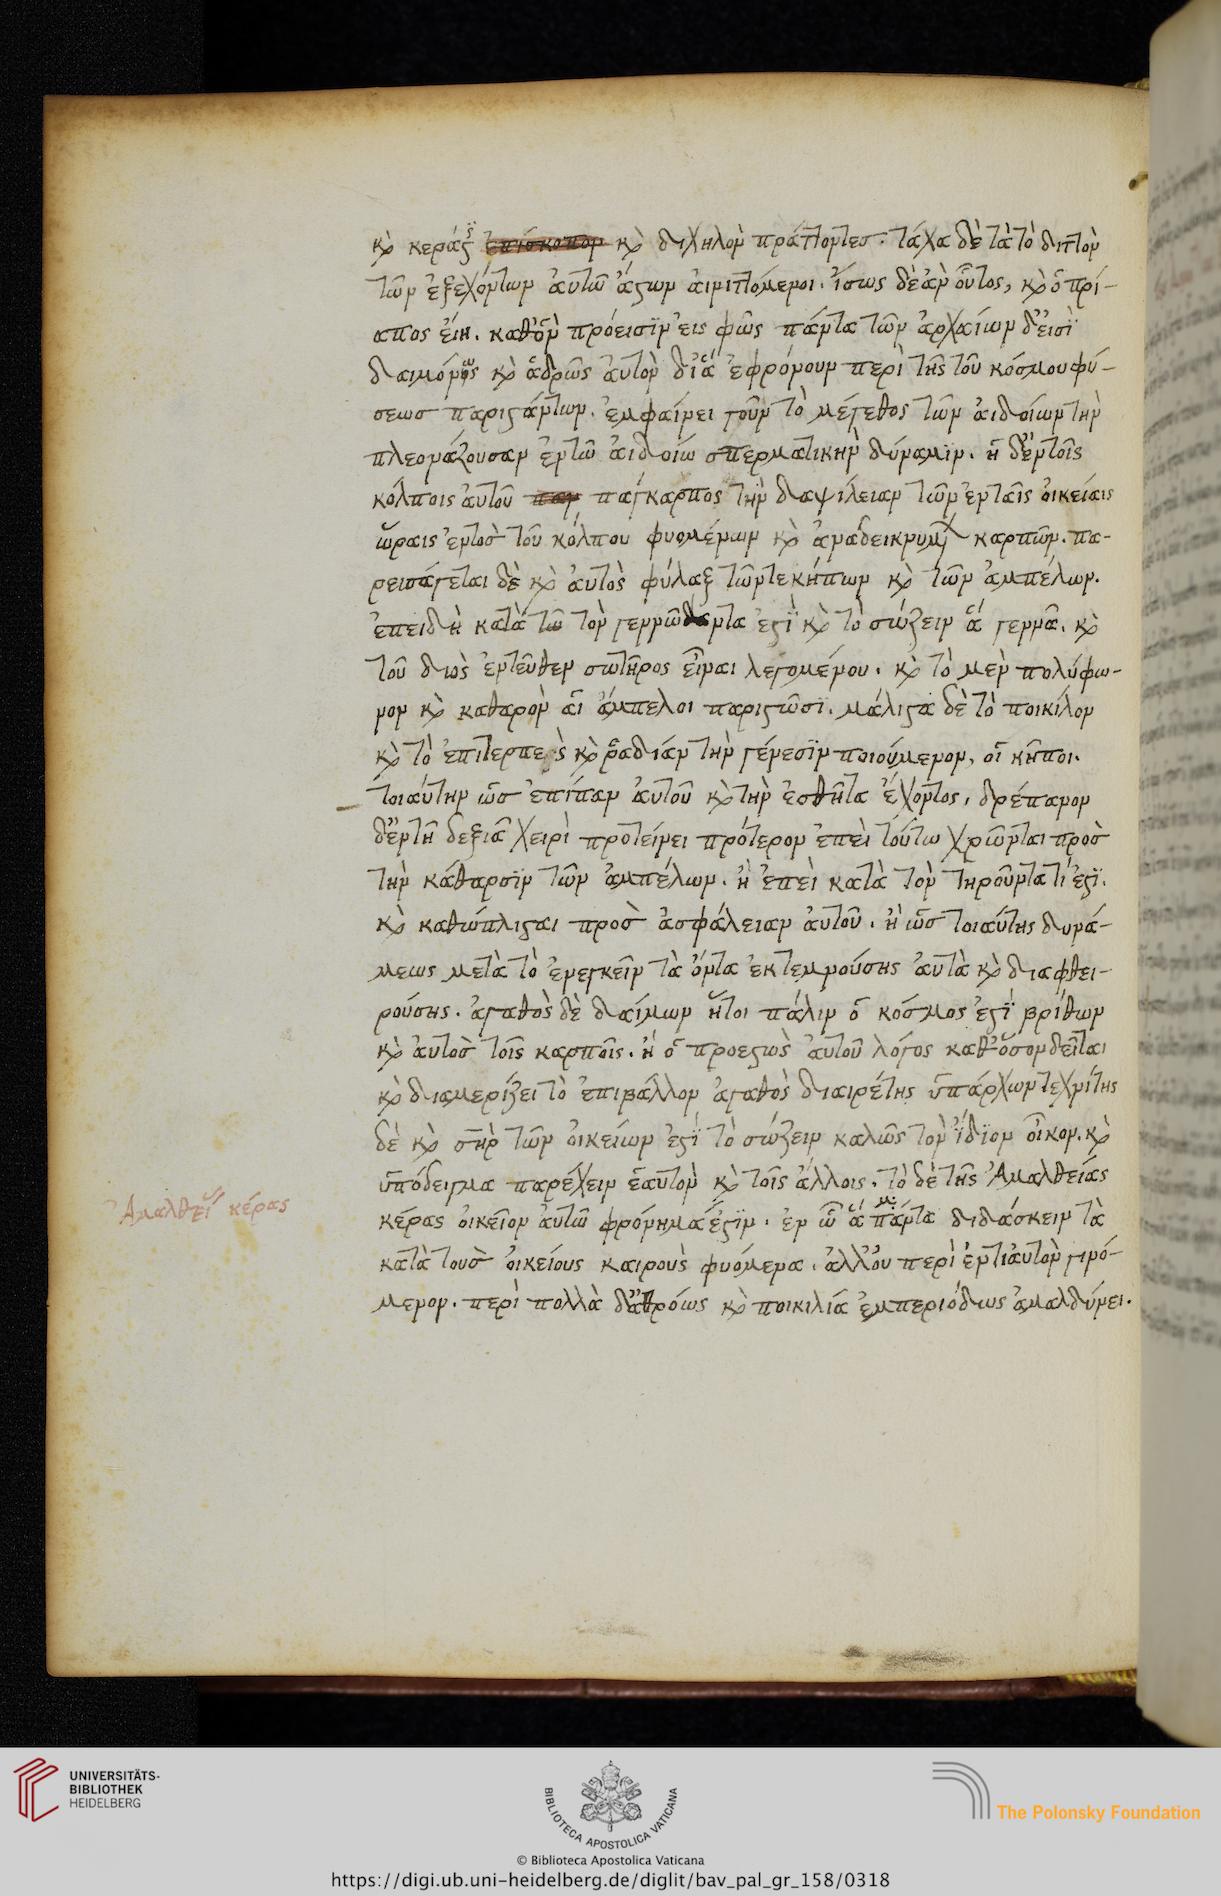 κὶ κεράς̈ ἐπίσκοπον κὶ διχηλὸν πράττοντες. τάχα δὲ τὰ τὸ διττὸν
τῶν ἐξεχόντων ἀυτῶ ἄστων ἀινιττόμενοι. ἴσως δὲ ἀν οὗτος, κὶ ὁ πρί-
απος ἔιη. καθ' ὃν πρόεισϊν εἰς φῶς πάντα τῶν ἀρχαίων δ' ἐισϊ
δαιμόνως κὶ ἁδρῶς ἀυτὸν δι' ἅ ἐφρόνουν περὶ τῆς τοῦ κόσμου φύ-
σεως παριστάντων. ἐμφαίνει γοῦν τὸ μέγεθος τῶν αἰδοίων τὴν
πλεονάζουσαν ἐν τῶ ἀιδοίω σπερματικὴν δύναμϊν. ἡ δ' ἐν τοῖς
κόλποις ἀυτοῦ παν παγκαρπος τὴν δαψίλειαν τῶν ἐν ταῖς ὀικείαις
ὥραις ἐντὸς τοῦ κόλπου φυομένων κὶ ἀναδεικνυμ καρπῶν. πα-
ρεισάγεται δὲ κὶ ἀυτὸς φύλαξ τῶν τε κήπων κὶ τῶν ἀμπέλων.
ἐπειδὴ κατὰ τῶ τὸν γεννῶντα ἐστϊ κὶ τὸ σώζειν ἅ γεννᾶ. κὶ
τοῦ διὸς ἐντεῦθεν σωτῆρος εἶναι λεγομένου. κὶ τὸ μὲν πολύφω-
νον κὶ καθαρὸν ἁι ἄμπελοι παριστῶσϊ. μάλιστα δὲ τὸ ποικίλον
κὶ τὸ ἐπιτερπες κὶ ῥαδίαν τὴν γένεσϊν ποιούμενον, οἱ κῆποι.
τοιαύτην ὡς ἐπίπαν ἀυτοῦ κὶ τὴν ἐσθῆτα ἔχοντος, δρέπανον
δ' ἐν τῆ δεξιᾶ χειρὶ προτείνει πρότερον ἐπεὶ τούτω χρῶνται πρὸς
τὴν κάθαρσϊν τῶν ἀμπέλων. ἢ ἐπεὶ κατὰ τὸν τηροῦντα τί ἐστϊ.
κὶ καθώπλισται πρὸς ἀσφάλειαν ἀυτοῦ. ἢ ὡς τοιαύτης δυνά-
μεως μετὰ τὸ ἐνεγκεῖν τὰ ὄντα ἐκτεμνούσης ἀυτὰ κὶ διαφθει-
ρούσης. ἀγαθὸς δὲ δαίμων ἤτοι πάλιν ὁ κόσμος ἐστϊ βρίθων
κὶ ἀυτὸς τοῖς καρποῖς. ἢ ὁ προεστὼς ἀυτοῦ λόγος καθ' ὅσον δεῖται
κὶ διαμερίζει τὸ ἐπιβάλλον ἀγαθὸς διαιρέτης ὑπάρχων τεχνίτης
δὲ κὶ σῆρ τῶν ὀικείων ἐστϊ τὸ σώζειν καλῶς τὸν ἴδϊον οἶκον. κὶ
ὑπόδειγμα παρέχειν ἑαυτὸν κὶ τοῖς ἄλλοις. τὸ δὲ τῆς Ἀμαλθείας
Ἀμαλθεί κέρας
κέρας ὀικεῖον ἀυτῶ φρόνημα ἐστϊν. ἐν ὧ ἅ πάντα διδάσκειν τὰ
κατὰ τοὺς ὀικείους καιροὺς φυόμενα. ἀλλ' ὀυ περὶ ἐντιἀυτὸν γινό-
μενον. περὶ πολλὰ δ' ἀθρόως κὶ ποικιλιά ἐμπεριόδως ἀμαλδύνει.
UNIVERSITÄTS-
BIBLIOTHEK
HEIDELBERG
BIBLIOTECA APOSTOLICA VATICANA
The Polonsky Foundation
© Biblioteca Apostolica Vaticana
https://digi.ub.uni-heidelberg.de/diglit/bav_pal_gr_158/0318